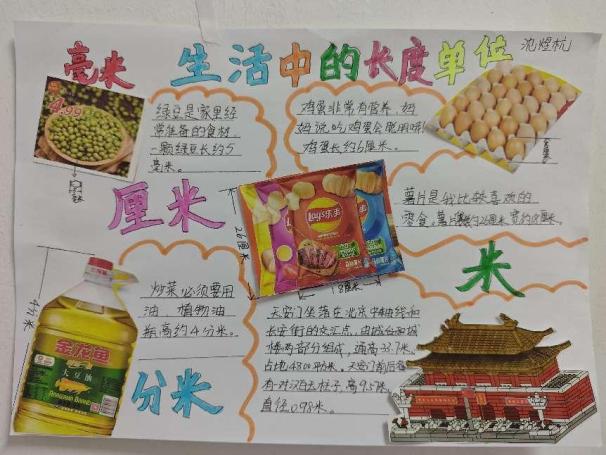 毫米
生活中的长度单位
沈煜杭
4.99
绿豆是家里经
常准备的食材
一颗绿豆长约5
毫米。
鸡蛋非常有营养，妈
妈说吃鸡蛋会聪明哦!
鸡蛋长约6厘米。
厘米
26厘米
Lay's乐事
18厘米
薯片是我比较喜欢的
零食，薯片长约26厘米宽约18厘米。
米
4分米
金龙鱼
大豆油
炒菜必须要用
油，植物油
瓶高约4分米。
分米
天安门坐落在北京中轴线和
长安街的交汇点，由城台和城
楼两部分组成，通高33.7米，
占地4800平方米。天安门前后各
有一对汉白玉柱子，高9.57米，
直径0.98米。